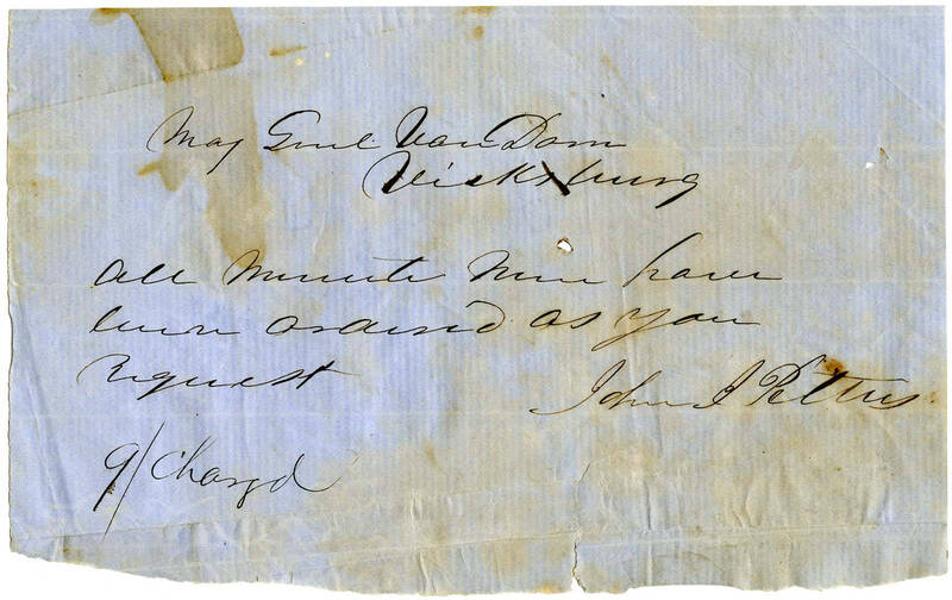 Maj Genl Van Dorn
Vicksburg
All Minute Men have
been ordered as you
request
John J Pettus
9/ Chargd